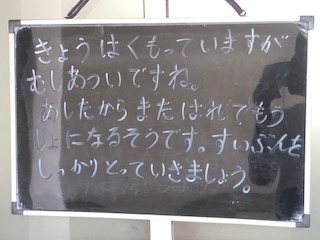 きょうはくもっていますが
むしあついですね。
あしたからまたはれてもう
しょになるそうです。すいぶんを
しっかりとっていきましょう。